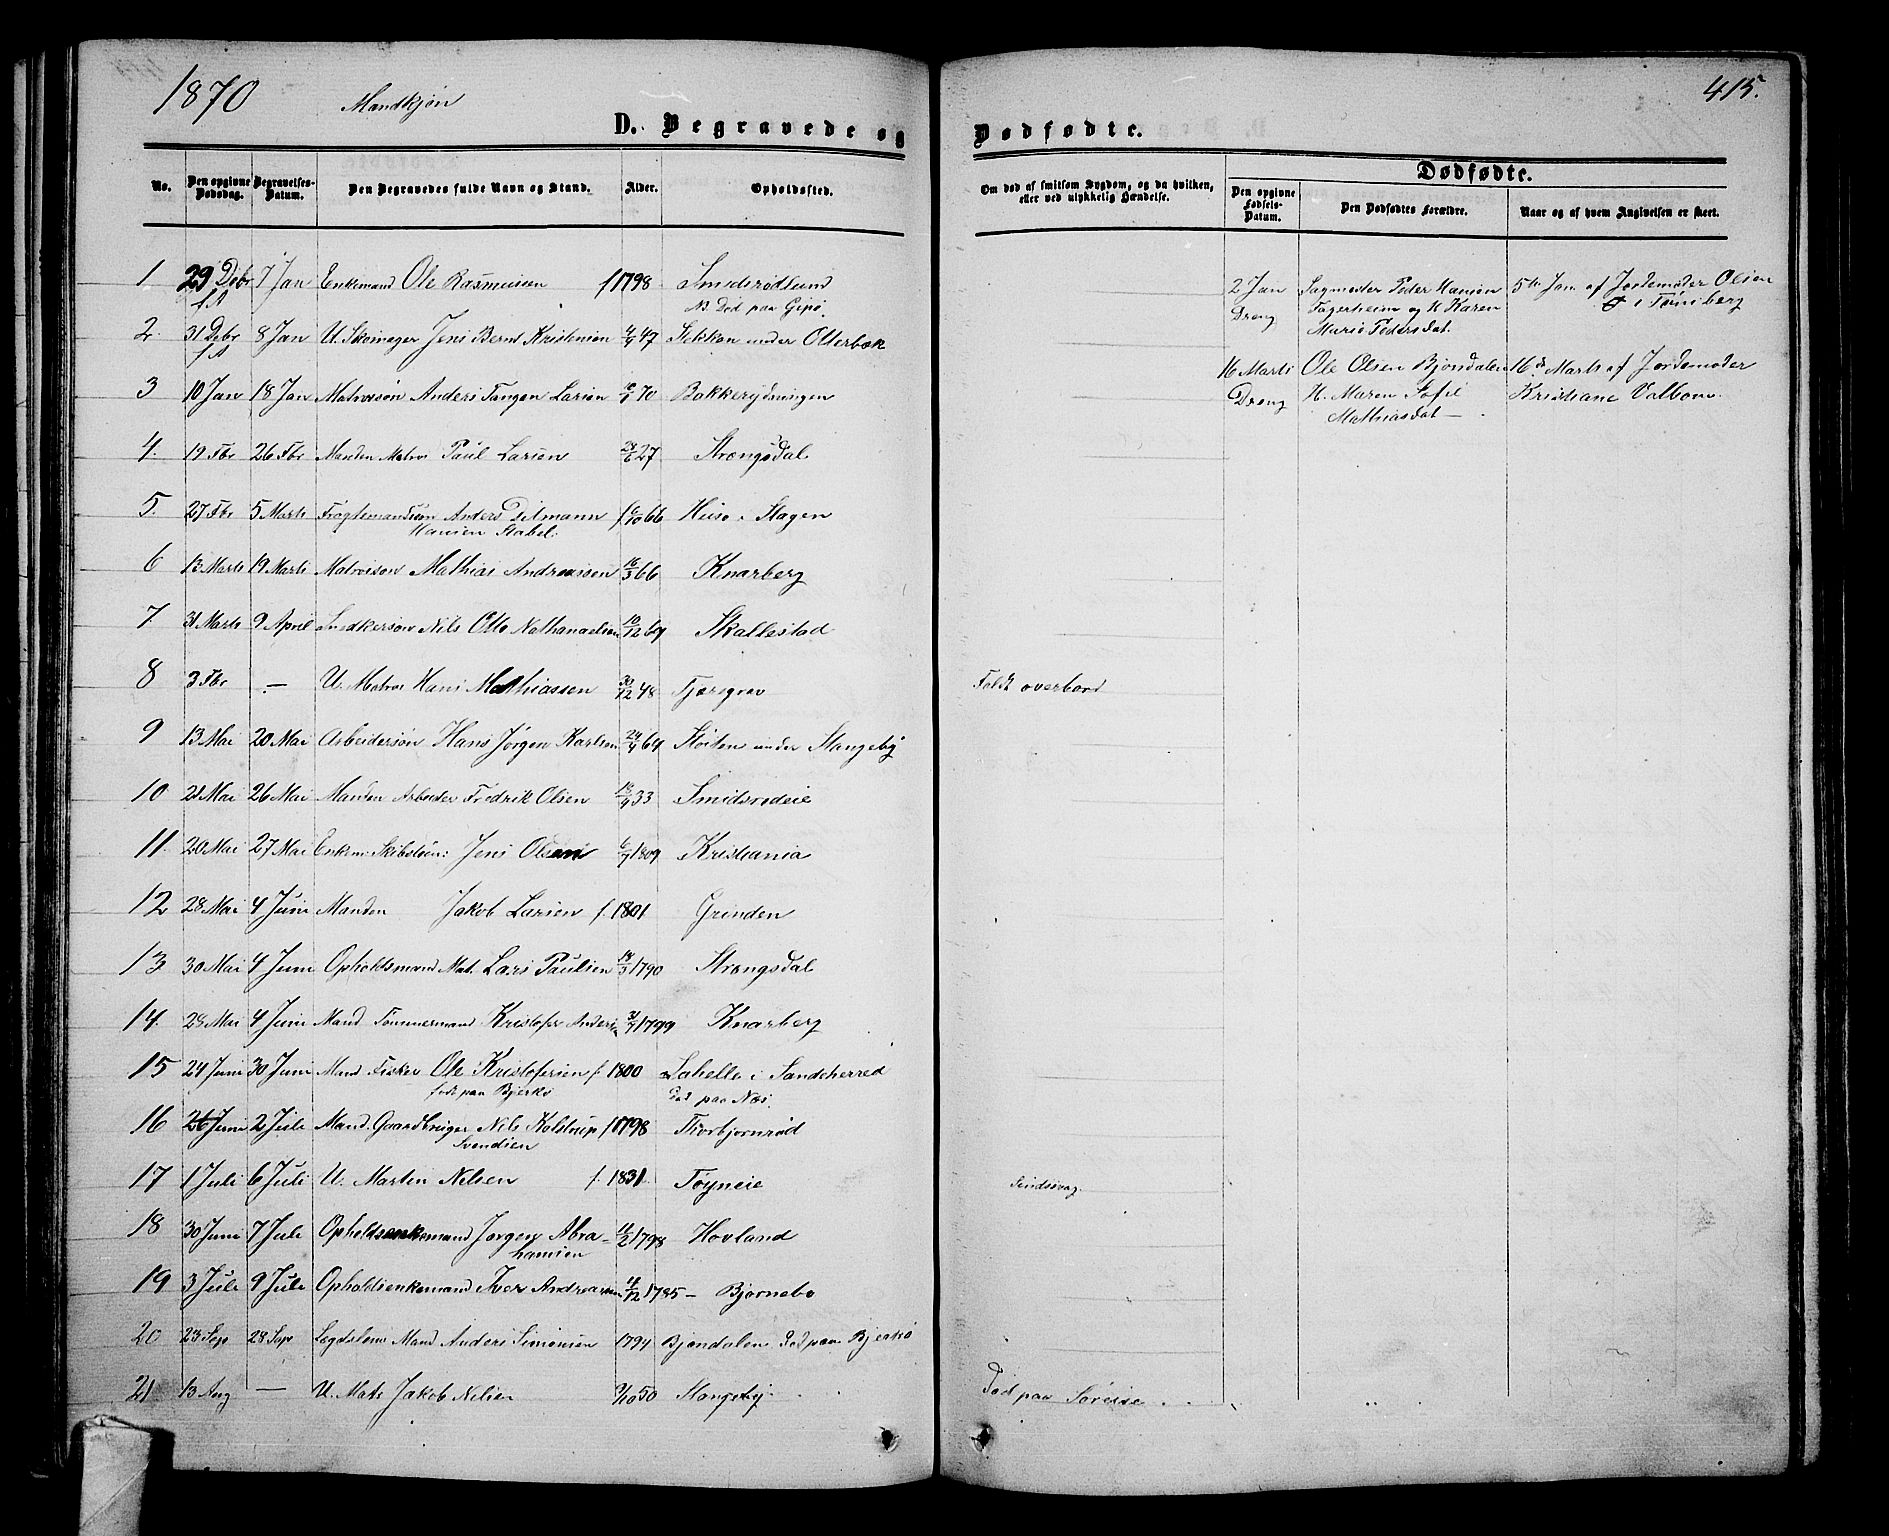 1870 Mandkjøn
415.
D. Begravede og Dødfødte.
No. Den opgivne Dødsdag. Begravelses-Datum. Den Begravedes fulde Navn og Stand. Alder. Opholdssted.
Om død af smitsom Sygdom, og da hvilken, eller ved ulykkelig Hændelse.
Dødfødte.
Den opgivne Fødsels-Datum. Den Dødfødtes Forældre. Naar og af hvem Angivelsen er skeet.
1 29 Debr 7 Jan Enkemand Ole Rasmussen f 1798 Smidsrødsund
f.A NB. Død paa Gipø.
2. 31 Debr 8 Jan U. Skomager Jens Bernt Kristensen 47 Stokken under Otterbæk
f.A
3 10 Jan 18 Jan Matrossøn Anders Tangen Larsen 70 Bakkerydningen
4. 19 Fbr 26 Fbr Manden Matros Paul Larsen 27 Strengsdal
5. 27 Fbr 5 Marts Fragtemandssøn Anders Ditmann f 6/10 66 Husø i Slagen
Hansen Stabel.
6 13 Marts 19 Marts Matrossøn Mathias Andreassen 16/3 66 Knarberg
7. 31 Marts 9 April Snedkersøn Nils Otto Nathanaelsen 10/12 69 Skallestad
8 3 Fbr — U. Matros Hans Mathiassen 30/12 48 Tjørsgrav
Faldt overbord
9 13 Mai 20 Mai Arbeidersøn Hans Jørgen Karlsen 24/4 69 Sloiten under Stangeby
10 21 Mai 26 Mai Manden Arbeider Fredrik Olsen 33 Smidsrødeie
11. 20 Mai 27 Mai Enkem: Skibstøm: Jens Olsen 6/7 1809 Kristiania
12 28 Mai 4 Juni Manden Jakob Larsen f. 1801 Grinden
13 30 Mai 4 Juni Opholdsmand Mat. Lars Paulsen 18/3 1790 Strengsdal
14. 28 Mai 4 Juni Mand Tømmermand Kristofer Anders 31/7 1799 Knarberg
15 24 Juni 30 Juni Mand Fisker Ole Kristofersen f. 1800 Lahelle i Sandeherred
født paa Bjerkø Død paa Næs.
16 26 Juni 2 Juli Mand. Gaardbruger Nils Kalstrup f 1798 Thorbjørnrød
Svendsen
17 1 Juli 6 Juli U. Martin Nilsen f. 1831. Tøyneie
Sindssvag.
18 30 Juni 7 Juli Opholdsenkemand Jørgen Abra- 11/2 1798 Hovland
hamsen
19 3 Juli 9 Juli Opholdsenkemand Iver Andreassen 11/12 1785 — Bjørnebo
20 23 Sep 28 Sep Lægdslem Mand Anders Simonsen 1794 Bjøndalen Død paa Bjerkø
21 13 Aug — U. Mats Jakob Nilsen 9/10 50 Stangeby.
Død paa Søreise
2 Jan Sagmester Peder Hansen 5te Jan. af Jordemoder Olsen
Dreng Fagerheim og K Karen i Tønsberg
Marie Pedersdat.
16 Marts Ole Olsen Bjøndalen 16de Marts af Jordemoder
Dreng H. Maren Sofie Kristiane Valbom.
Mathiasdat —